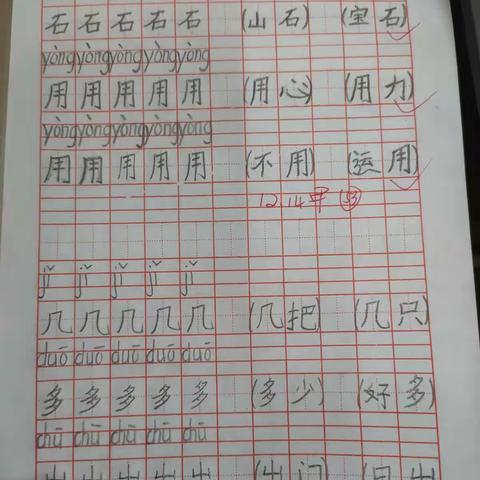 石 石 石 石 石 (山 石) (宝 石)
yòng yòng yòng yòng yòng
用 用 用 用 用 (用 心) (用 力)
yòng yòng yòng yòng yòng
用 用 用 用 用 (不 用) (运 用)
12.14 甲
jǐ jǐ jǐ jǐ jǐ
几 几 几 几 几 (几 把) (几 只)
duō duō duō duō duō
多 多 多 多 多 (多 少) (好 多)
chū chū chū chū chū
出 出 出 出 出 (出 门) (日 出